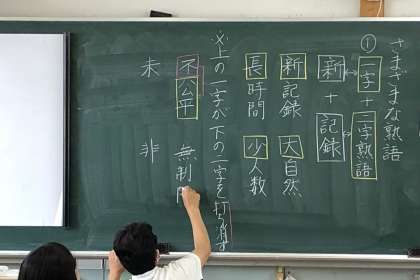 さまざまな熟語
① 一字+二字熟語
新+記録
新記録 大自然
長時間 少人数
必上の一字が下の二字を打ち消す
不公平 無制
未 非